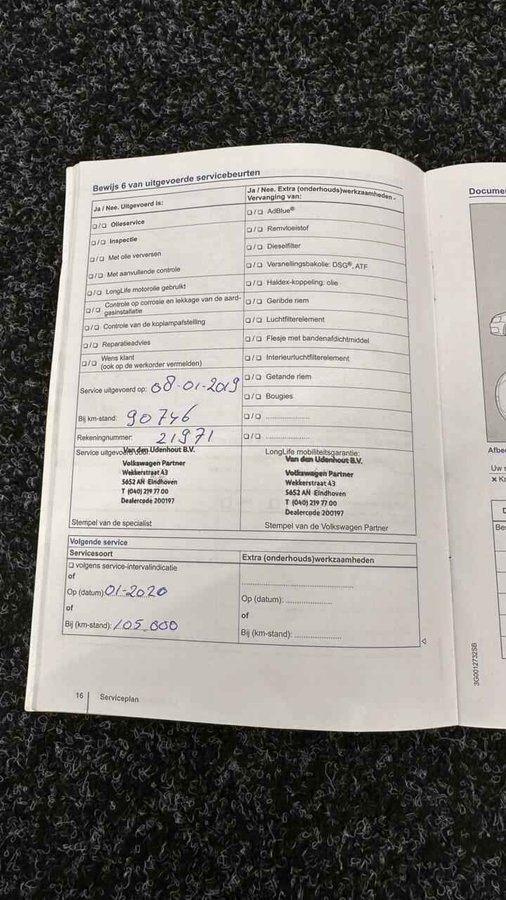 Bewijs 6 van uitgevoerde servicebeurten
Ja / Nee. Uitgevoerd is:
❏ / ❏ Olieservice
❏ / ❏ Inspectie
❏ / ❏ Met olie verversen
❏ / ❏ Met aanvullende controle
❏ / ❏ LongLife motorolie gebruikt
❏ / ❏ Controle op corrosie en lekkage van de aard-
gasinstallatie
❏ / ❏ Controle van de koplampafstelling
❏ / ❏ Reparatieadvies
❏ / ❏ Wens klant
(ook op de werkorder vermelden)
Service uitgevoerd op: 08-01-2019
Bij km-stand: 90746
Rekeningnummer: 21971
Service uitgevoerd door:
Van den Udenhout B.V.
Volkswagen Partner
Wekkerstraat 43
5652 AN Eindhoven
T (040) 219 77 00
Dealercode 200197
Stempel van de specialist
Ja / Nee. Extra (onderhouds)werkzaamheden -
Vervanging van:
❏ / ❏ AdBlue®
❏ / ❏ Remvloeistof
❏ / ❏ Dieselfilter
❏ / ❏ Versnellingsbakolie: DSG®, ATF
❏ / ❏ Haldex-koppeling: olie
❏ / ❏ Geribde riem
❏ / ❏ Luchtfilterelement
❏ / ❏ Flesje met bandenafdichtmiddel
❏ / ❏ Interieurluchtfilterelement
❏ / ❏ Getande riem
❏ / ❏ Bougies
❏ / ❏ ....................
❏ / ❏ ....................
LongLife mobiliteitsgarantie:
Van den Udenhout B.V.
Volkswagen Partner
Wekkerstraat 43
5652 AN Eindhoven
T (040) 219 77 00
Dealercode 200197
Stempel van de Volkswagen Partner
Volgende service
Servicesoort
❏ volgens service-intervalindicatie
of
Op (datum): 01-2020
of
Bij (km-stand): 105.000
Extra (onderhouds)werkzaamheden
..............................................
Op (datum): ....................
of
Bij (km-stand): ....................
16 Serviceplan
Docume
Afbee
Uw s
× Kr
D
Bes
3G0012732SB